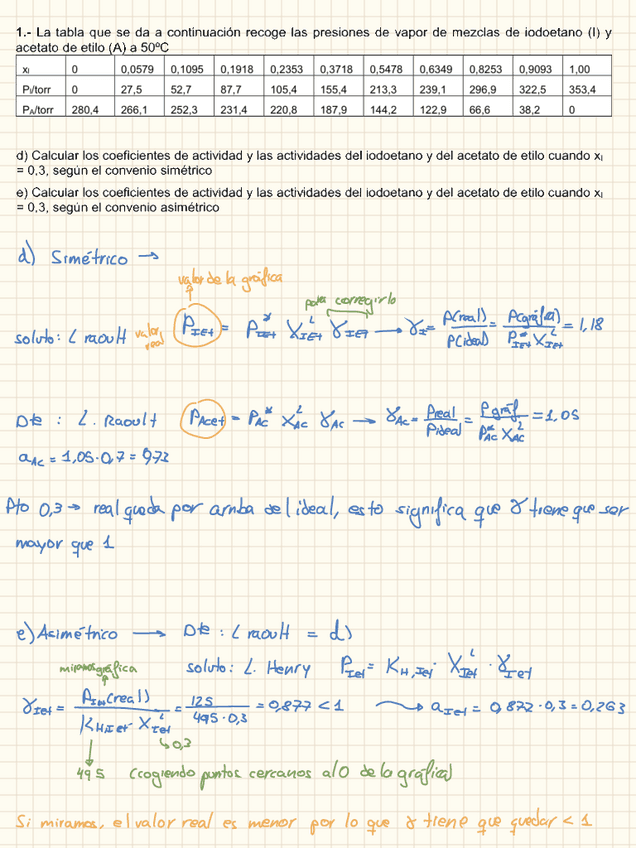 1.- La tabla que se da a continuación recoge las presiones de vapor de mezclas de iodoetano (I) y
acetato de etilo (A) a 50ºC
xI 0 0,0579 0,1095 0,1918 0,2353 0,3718 0,5478 0,6349 0,8253 0,9093 1,00
PI/torr 0 27,5 52,7 87,7 105,4 155,4 213,3 239,1 296,9 322,5 353,4
PA/torr 280,4 266,1 252,3 231,4 220,8 187,9 144,2 122,9 66,6 38,2 0
d) Calcular los coeficientes de actividad y las actividades del iodoetano y del acetato de etilo cuando xI
= 0,3, según el convenio simétrico
e) Calcular los coeficientes de actividad y las actividades del iodoetano y del acetato de etilo cuando xI
= 0,3, según el convenio asimétrico
d) Simétrico →
valor de la gráfica
para corregirlo
soluto: L raoult valor real P_IEt = P*_IEt X^L_IEt γ_IEt → γ_I = P(real)/P(ideal) = P(gráfica)/P*_IEt X^L_IEt = 1,18
Dte : L. Raoult P_Acet = P_Ac* X^L_Ac γ_Ac → γ_Ac = Preal/Pideal = Pgráf/P*_Ac X^L_Ac = 1,05
a_Ac = 1,05·0,7 = 0,72
Pto 0,3 → real queda por arriba del ideal, esto significa que γ tiene que ser
mayor que 1
e) Asimétrico → Dte : L raoult = d)
miramos gráfica
soluto: L. Henry P_Iet = K_H,Iet X^L_Iet · γ_Iet
γ_Iet = P_Iet(real)/K_H,Iet X^L_Iet = 125/495·0,3 = 0,877 < 1 → a_Iet = 0,872·0,3 = 0,263
↳ 0,3
495 (cogiendo puntos cercanos al 0 de la gráfica)
Si miramos, el valor real es menor por lo que γ tiene que quedar < 1